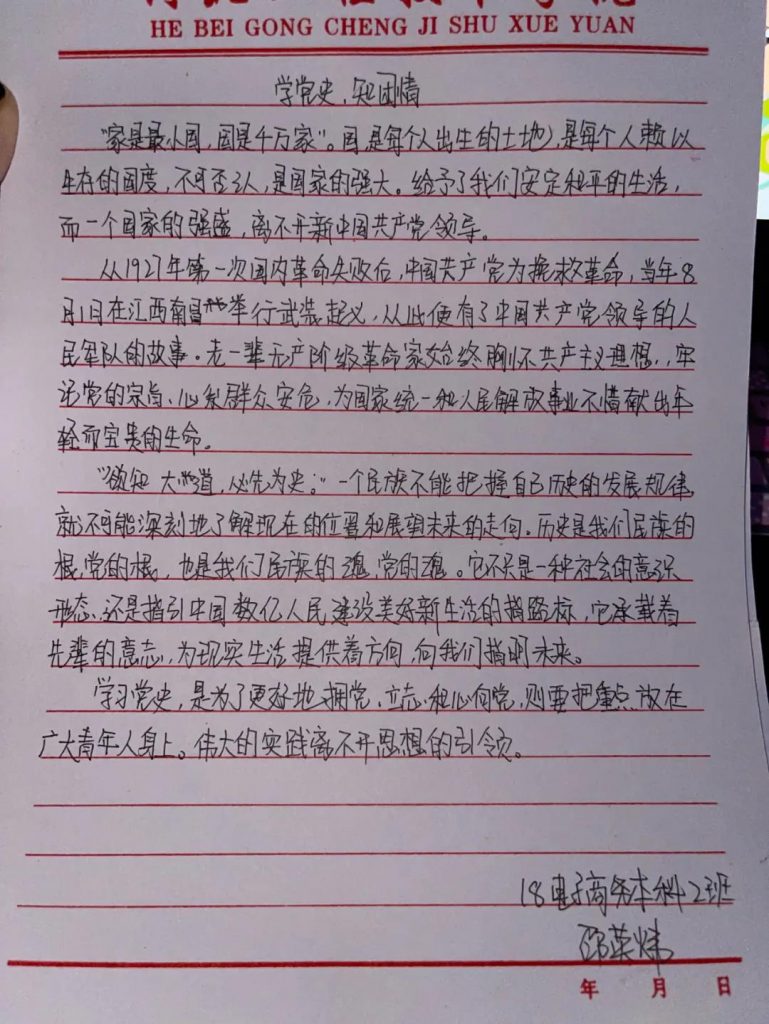 HE BEI GONG CHENG JI SHU XUE YUAN
学党史,知团情
"家是最小国,国是千万家"。国,是每个人出生的土地,是每个人赖以
生存的国度,不可否认,是国家的强大。给予了我们安定和平的生活,
而一个国家的强盛,离不开新中国共产党领导。
从1927年第一次国内革命失败后,中国共产党为挽救革命,当年8
月1日在江西南昌举行武装起义,从此便有了中国共产党领导的人
民军队的故事。老一辈无产阶级革命家始终胸怀共产主义理想,牢
记党的宗旨、心系群众安危,为国家统一和人民解放事业不惜献出年
轻而宝贵的生命。
"欲知大道,必先为史。"一个民族不能把握自己历史的发展规律,
就不可能深刻地了解现在的位置和展望未来的走向。历史是我们民族的
根,党的根,也是我们民族的魂,党的魂。它不只是一种社会的意识
形态,还是指引中国数亿人民建设美好新生活的指路标,它承载着
先辈的意志,为现实生活提供着方向,向我们指明未来。
学习党史,是为了更好地拥党、立志和心向党,则要把重点放在
广大青年人身上。伟大的实践离不开思想的引领。
18电子商务本科2班
邵英炜
年 月 日